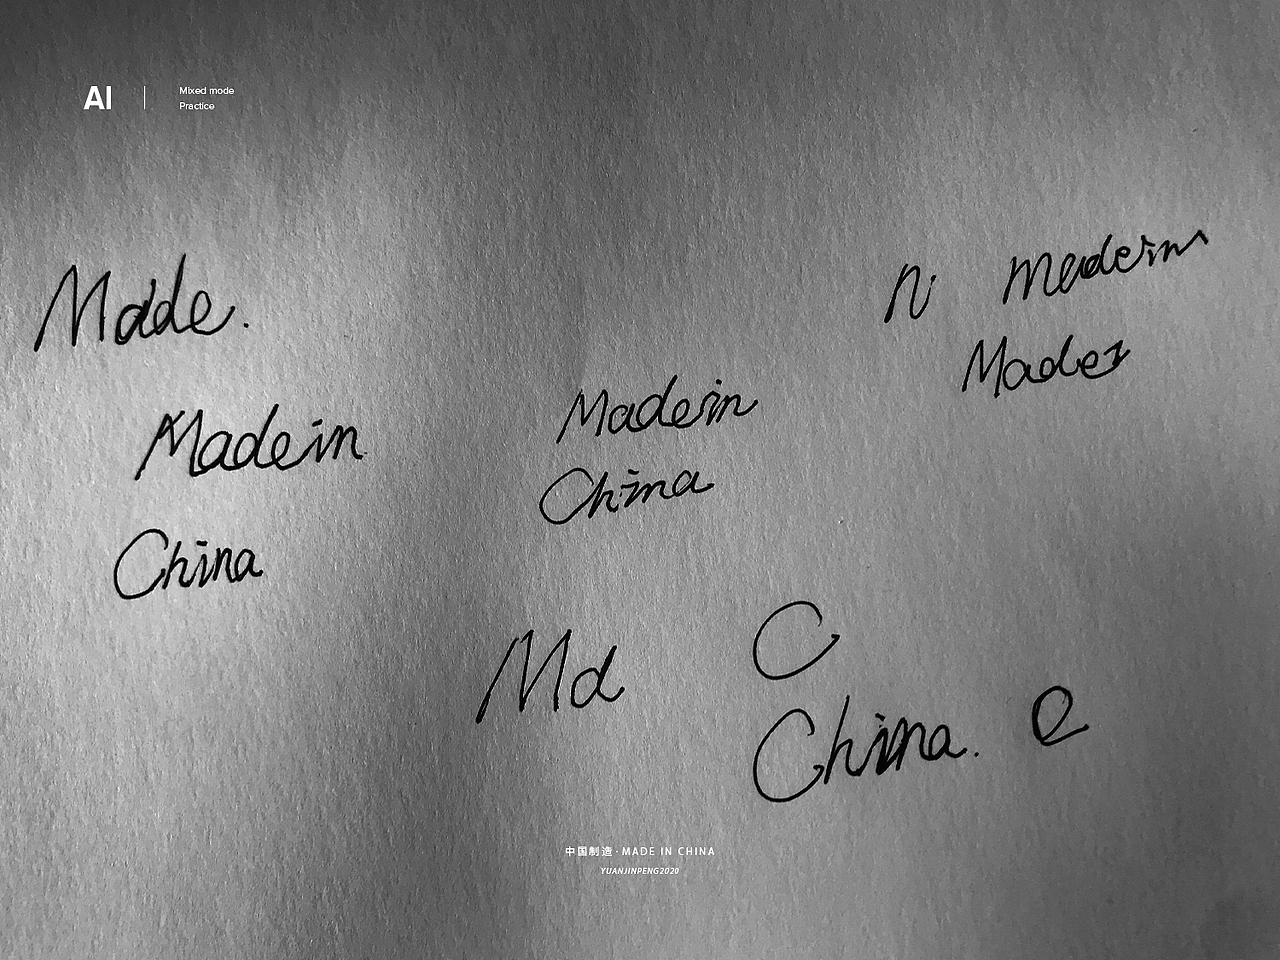 AI
Mixed mode
Practice
Made.
Madein
China
Madein
China
n. Madein
Made
Md
C
China. e
中国制造·MADE IN CHINA
YUANJINPENG2020